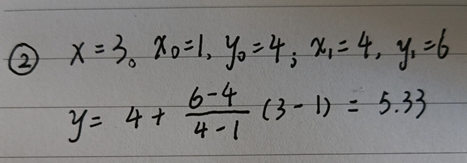 ② x=3。x₀=1, y₀=4; x₁=4, y₁=6
y= 4+ \frac{6-4}{4-1} (3-1) = 5.33